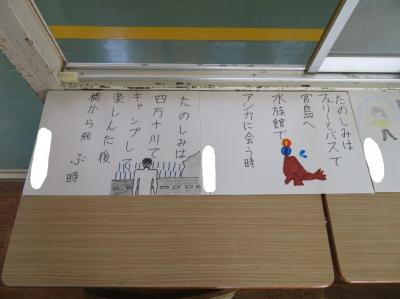 たのしみは
フェリーとバスで
宮島へ
水族館で
アシカに会う時
たのしみは
四万十川で
キャンプして
楽しんだ後
橋から飛ぶ時